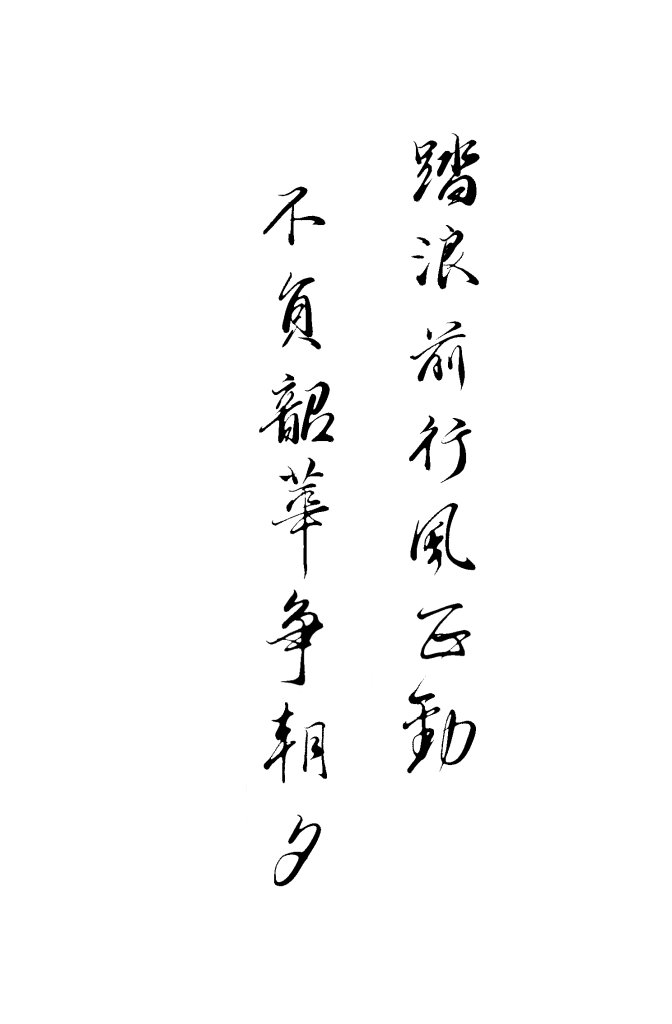 踏浪前行風正勁
不負韶華争朝夕